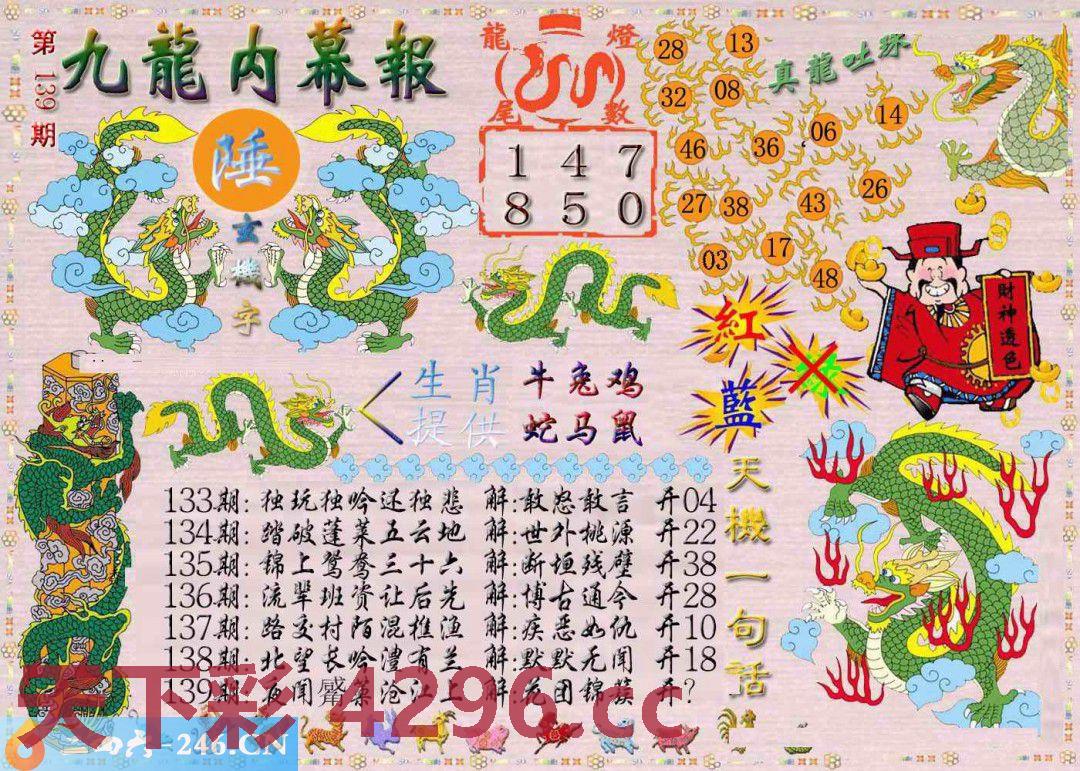 第139期
九龍内幕報
陲
玄機字
龍燈
尾數
1 4 7
8 5 0
真龍吐珠
28 13
32 08
14
06
46 36
26
27 38 43
17
03 48
紅
藍
財神透色
生肖 牛兔鸡
提供 蛇马鼠
天機一句話
133期: 独玩独吟还独悲 解:敢怒敢言 开04
134期: 踏破蓬莱五云地 解:世外桃源 开22
135期: 锦上鸳鸯三十六 解:断垣残壁 开38
136期: 流辈班资让后先 解:博古通今 开28
137期: 路交村陌混樵渔 解:疾恶如仇 开10
138期: 北望长吟澧有兰 解:默默无闻 开18
139期: 夜闻觱篥沧江上 解:花团锦簇 开?
天下彩 4296.cc
=246.CN